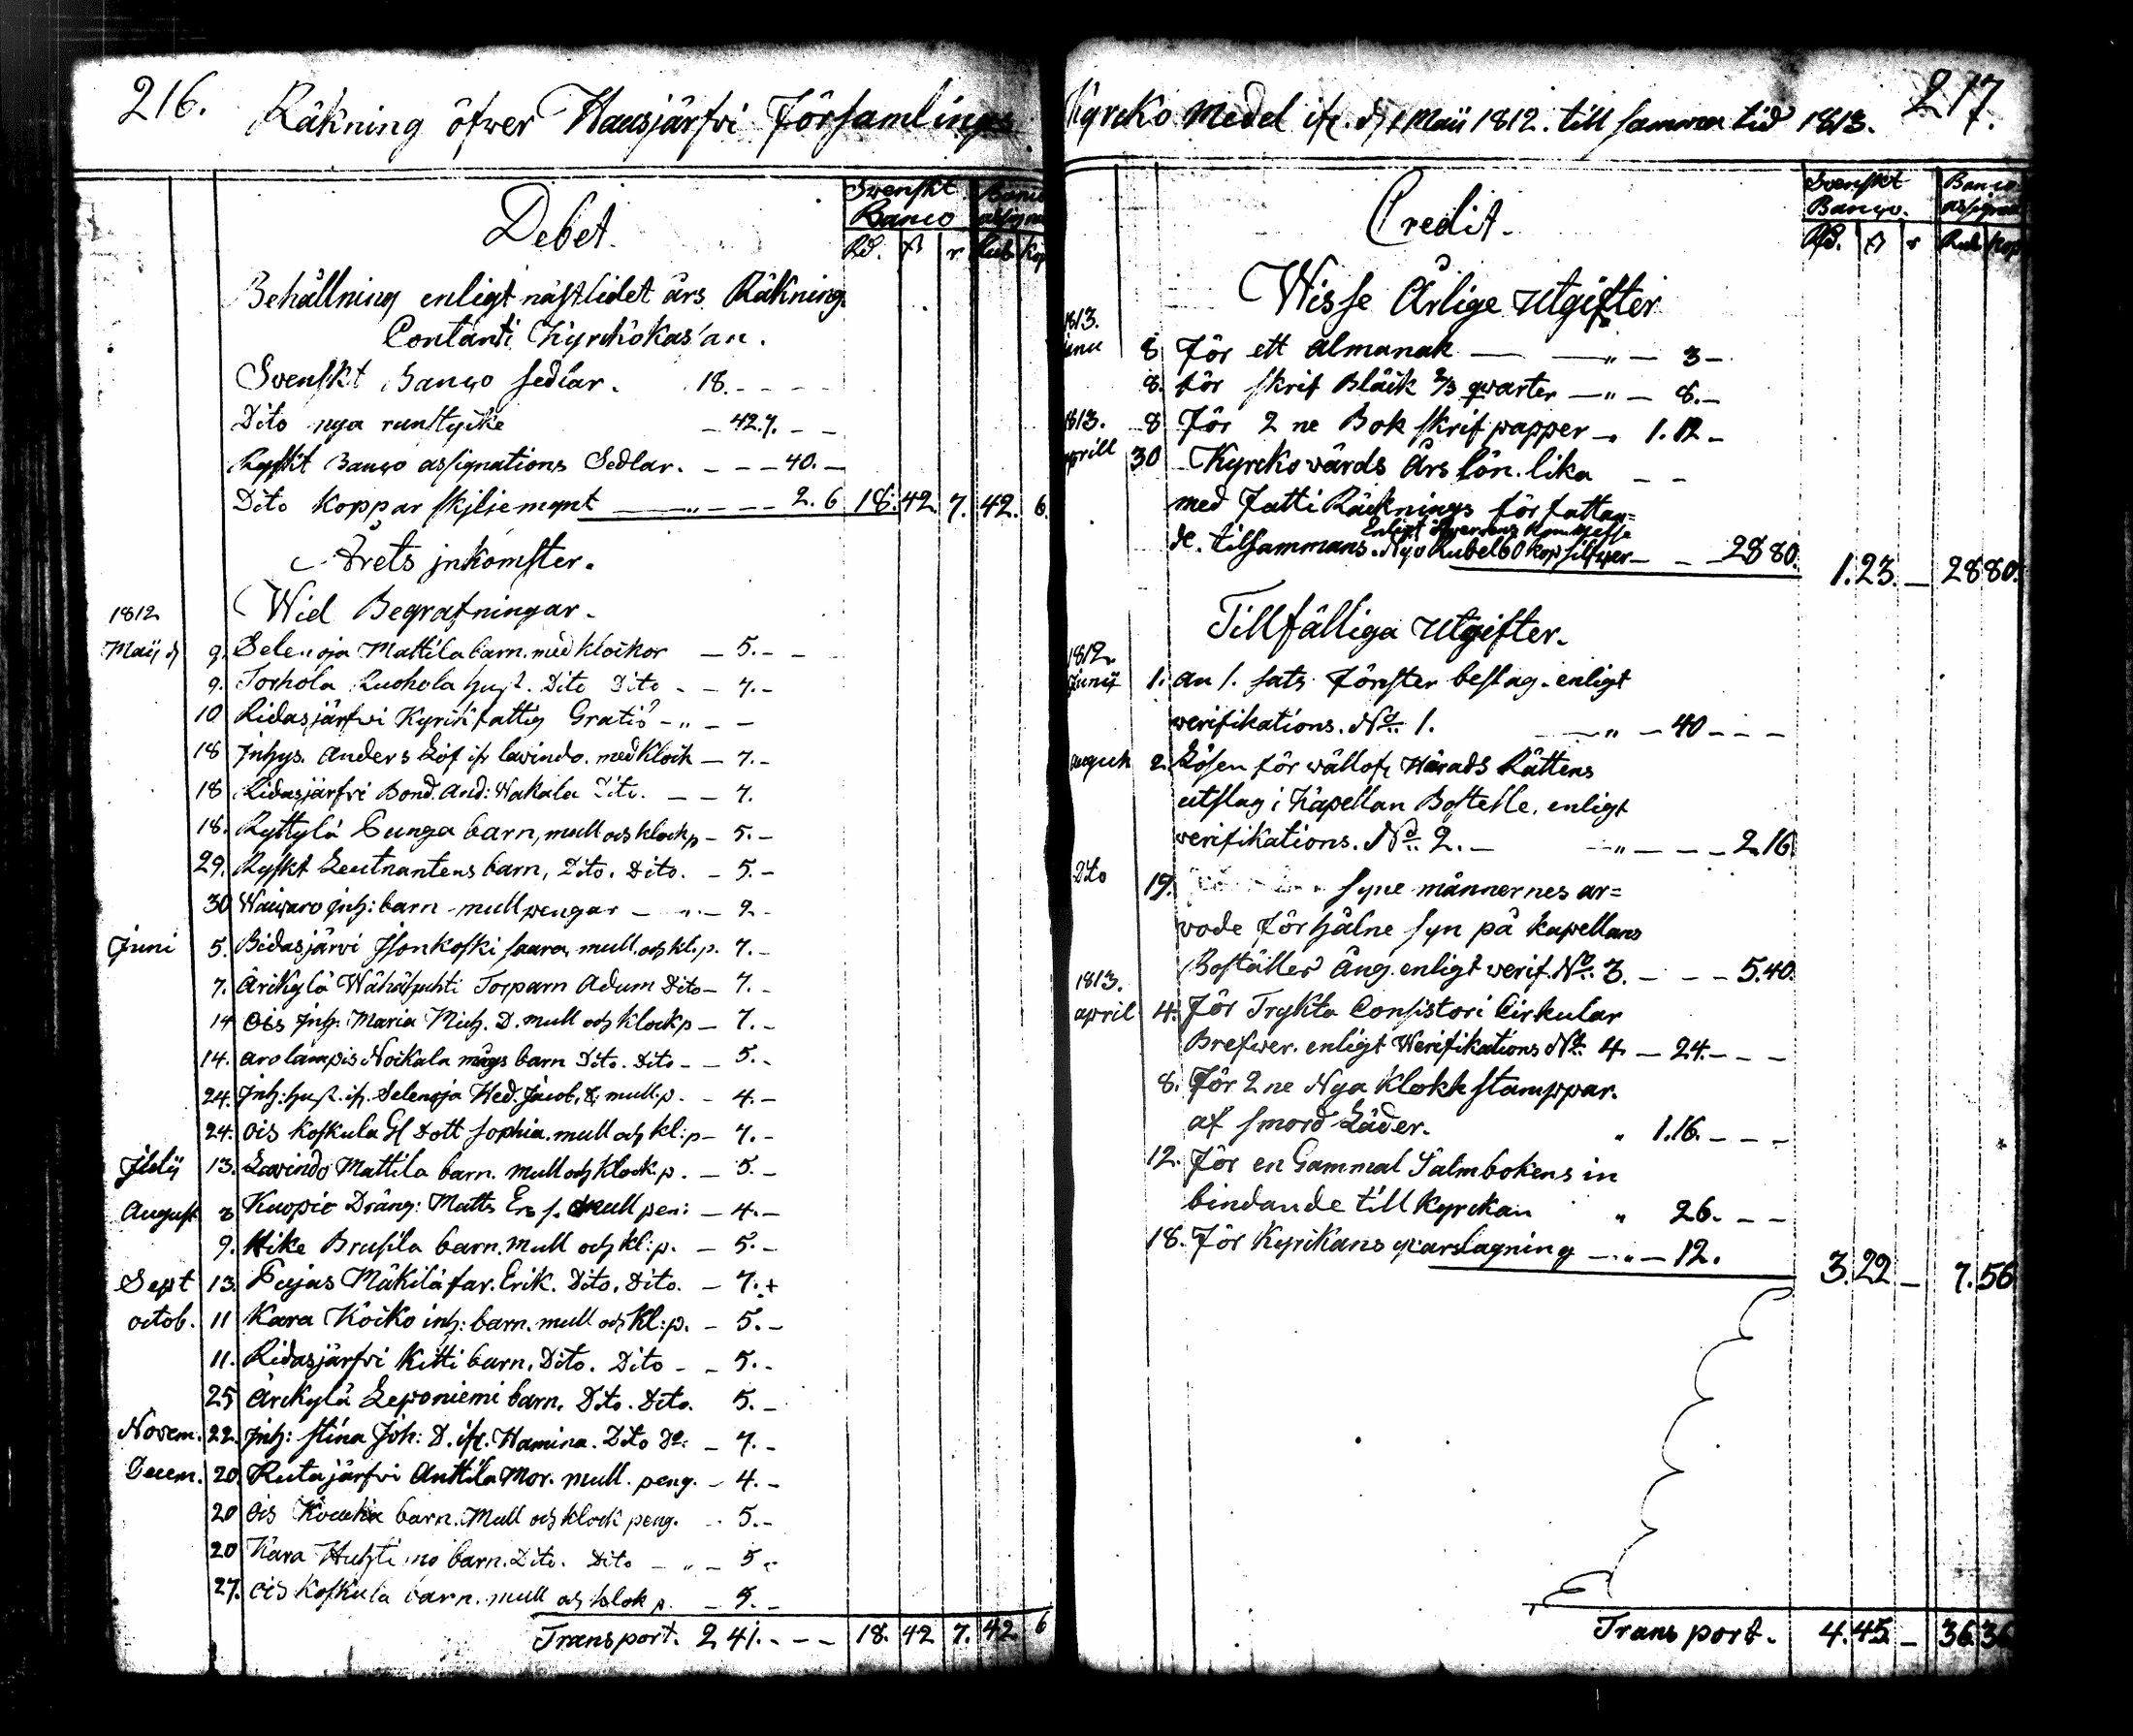 216. Räkning öfwer Hausjärfvi Församlings
Debet.
Svenskt Banco
Banco assign
Rd. ß r Rub Kop
Behållning enligt nästlidet års Räkning
Contant i Kyrckokas'an.
Svenskt Banco sedlar. 18. - - -
Dito nya runstycke - 42.7. - -
Ryskt Banco assignations Sedlar. - - - 40. -
Dito Koppar skiljemynt - „ - - - 2. 6 18. 42. 7. 42. 6.
Årets jnkomster.
1812 Wid Begrafningar.
Maij d 9. Selenoja Mattila barn. med klockor - 5. - -
9. Torhola Ruohola hust. Dito Dito - - 7. -
10 Ridasjärfvi Kyrck fattig Gratis - „ - -
18 jnhys. Anders Löf ifr Lavindo. med klock - 7. -
18 Ridasjärfvi Bond. And: Wakala Dito. - - 7.
18. Ryttylä Punga barn, mull och klock p - 5. -
29. Ryskt Leutnantens barn, Dito. Dito. - 5. -
30 jnh: barn - mull pengar - „ - 2. -
Juni 5. Ridasjärvi Jsonkoski Saara, mull. och kl. p. 7. -
7. Ärikylä Wähähuhti Torparn Adam Dito - 7. -
14 Ois jnh. Maria Mich. D. mull och klock p - 7. -
14. Arolampis Noikala mågs barn Dito. Dito - - 5. -
24. jnh: hust. ifr. Selenoja Hed. Jacob. D. mull. p. - 4. -
24. Ois Koskula Gl Dott Sophia. mull och kl: p - 7. -
Julij 13. Lavindo Mattila barn. mull och klock. p. - 5. -
August 8 Kuopio Dräng: Matts Ers s. mull pen: - 4. -
9. Hike Brusila barn. mull och kl: p. - 5. -
Sept 13. Pujas Mäkilä far. Erik. Dito. Dito. - 7. +
octob. 11 Kara Koiko inh: barn. mull och Kl: p. - 5. -
11. Ridasjärfvi Kitti barn. Dito. Dito - - 5. -
25 Ärikylä Leponiemi barn. Dito. Dito. 5. -
Novem. 22. jnh: Stina Joh: D. ifr. Hamina. Dito Do: - 7. -
Decem. 20. Rutajärfvi Anttila Mor. mull. peng. - 4. -
20 Ois barn. Mull och klock peng. - 5. -
20 Kara Huhtimo barn. Dito. Dito - „ - 5 -
27. Ois Koskula barn. mull och klok p. - 5. -
Transport. 2 41. - - - 18. 42 7. 42. 6
Kyrcko Medel ifr. d 1 Maii 1812. till samma tid 1813. 217.
Credit.
Svenskt Banco.
Banco assignat
Rd. ß r Rub Kop
Wisse Årlige utgifter
1813.
8 för ett almanak - - „ - 3 -
8. för skrif Bläck 2/3 qvarter - „ - 8. -
1813. 8 för 2 ne Bok skrif papper - 1. 12 -
aprill 30 Kyrckovärds Års lön. lika - -
med Fatti Räcknings författan=
de. tilsammans. Nijo Rubel 60 kop silfwer - - - 28 80. 1. 23. - 28 80.
Tillfälliga utgifter.
1812.
Junij 1. an 1. sats Fönster beslag. enligt
verifikations. No. 1. - „ - 40 - - -
august 2. Lösen för wällofl Härads Rättens
utslag i Kapellan Bostelle. enligt
verifikations. No. 2. - - „ - - - 2 16.
Dito 19. syne männernes ar=
vode för hålne syn på kapellans
Boställes Äng. enligt verif. No. 3. - - - 5.40.
1813.
april 4. för Trykta Consistori Cirkular
Brefwer. enligt Werifikations No. 4. - 24. - - -
8. för 2 ne Nya Klokk stamppar.
af smord Läder. „ 1.16. - - -
12. för en Gammal Salmbokens in
bindande till Kyrckan „ 26. - -
18. för Kyrckans - „ - 12. 3. 22 - 7. 56
Transport. 4. 45. - 36. 36